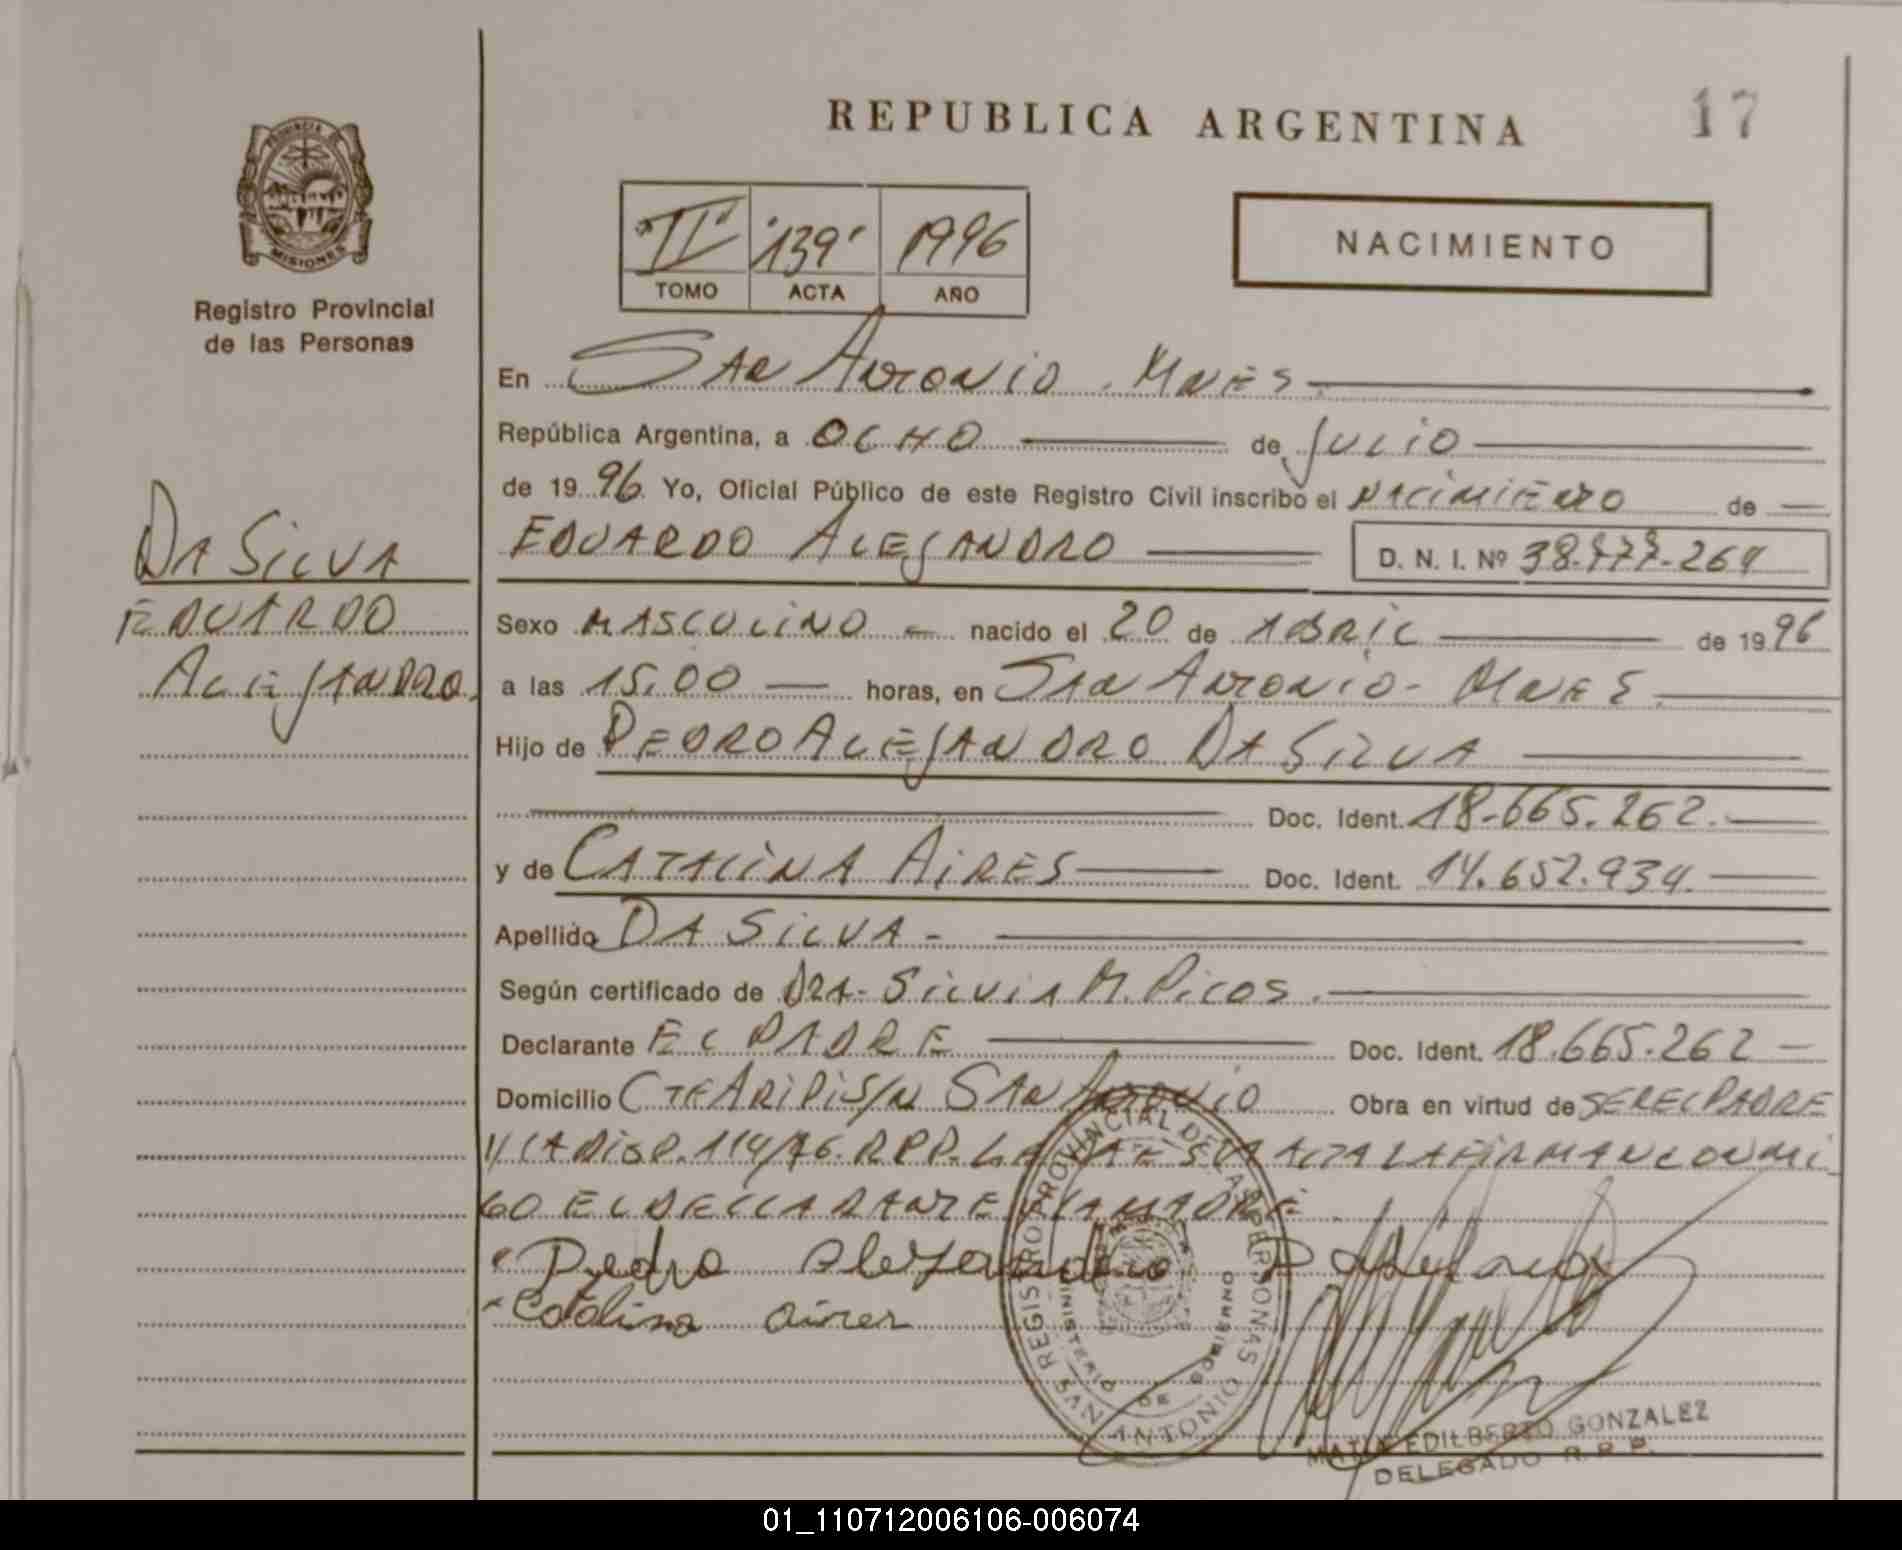 REPUBLICA ARGENTINA
17
PROVINCIA DE
MISIONES
Registro Provincial
de las Personas
"II" "139" 1996
TOMO ACTA AÑO
NACIMIENTO
En San Antonio. Mnes.
República Argentina, a OCHO de Julio
de 1996 Yo, Oficial Público de este Registro Civil inscribo el NACIMIENTO de
EDUARDO ALEJANDRO D. N. I. Nº
DA SILVA
EDUARDO
ALEJANDRO.
Sexo MASCULINO nacido el 20 de ABRIL de 1996
a las 15,00 horas, en SAN ANTONIO - MNES.
Hijo de PEDRO ALEJANDRO DA SILVA
Doc. Ident. 18.665.262.
y de CATALINA AIRES Doc. Ident. 14.652.934.
Apellido DA SILVA -
Según certificado de DRA. SILVIA M. PICOS.
Declarante EL PADRE Doc. Ident. 18.665.262
Domicilio CTE ARIPI S/N SAN ANTONIO Obra en virtud de SER EL PADRE
Y LA DISP. 114/76. R.P.P. ACTA LA FIRMAN CONMI
GO EL DECLARANTE Y LA MADRE.
Pedro Alejandro Da Silva
Catalina Aires
REGISTRO PROVINCIAL DE LAS PERSONAS
MINISTERIO DE GOBIERNO
SAN ANTONIO
EDILBERTO GONZALEZ
DELEGADO R. P. P.
01_110712006106-006074